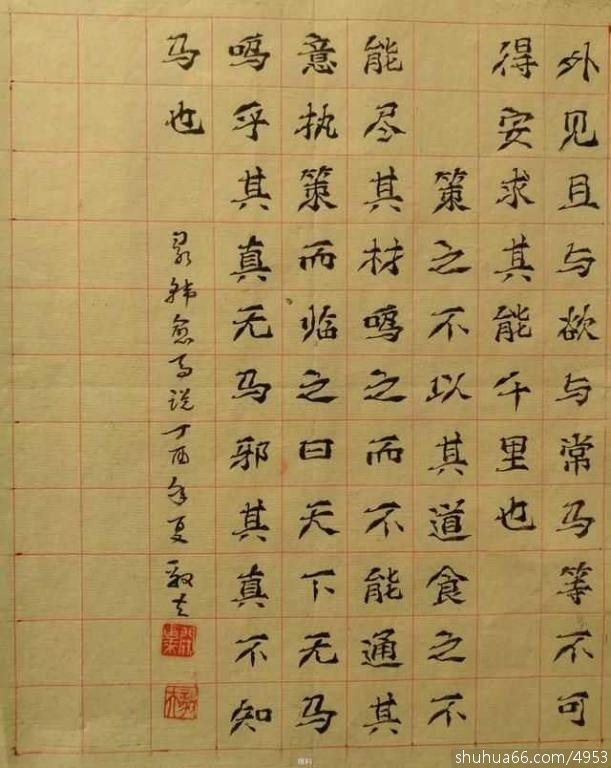 外见且与欲与常马等不可
得安求其能千里也
策之不以其道食之不
能尽其材鸣之而不能通其
意执策而临之曰天下无马
呜乎其真无马邪其真不知
马也
录韩愈马说丁酉年夏
shuhua66.com/4953